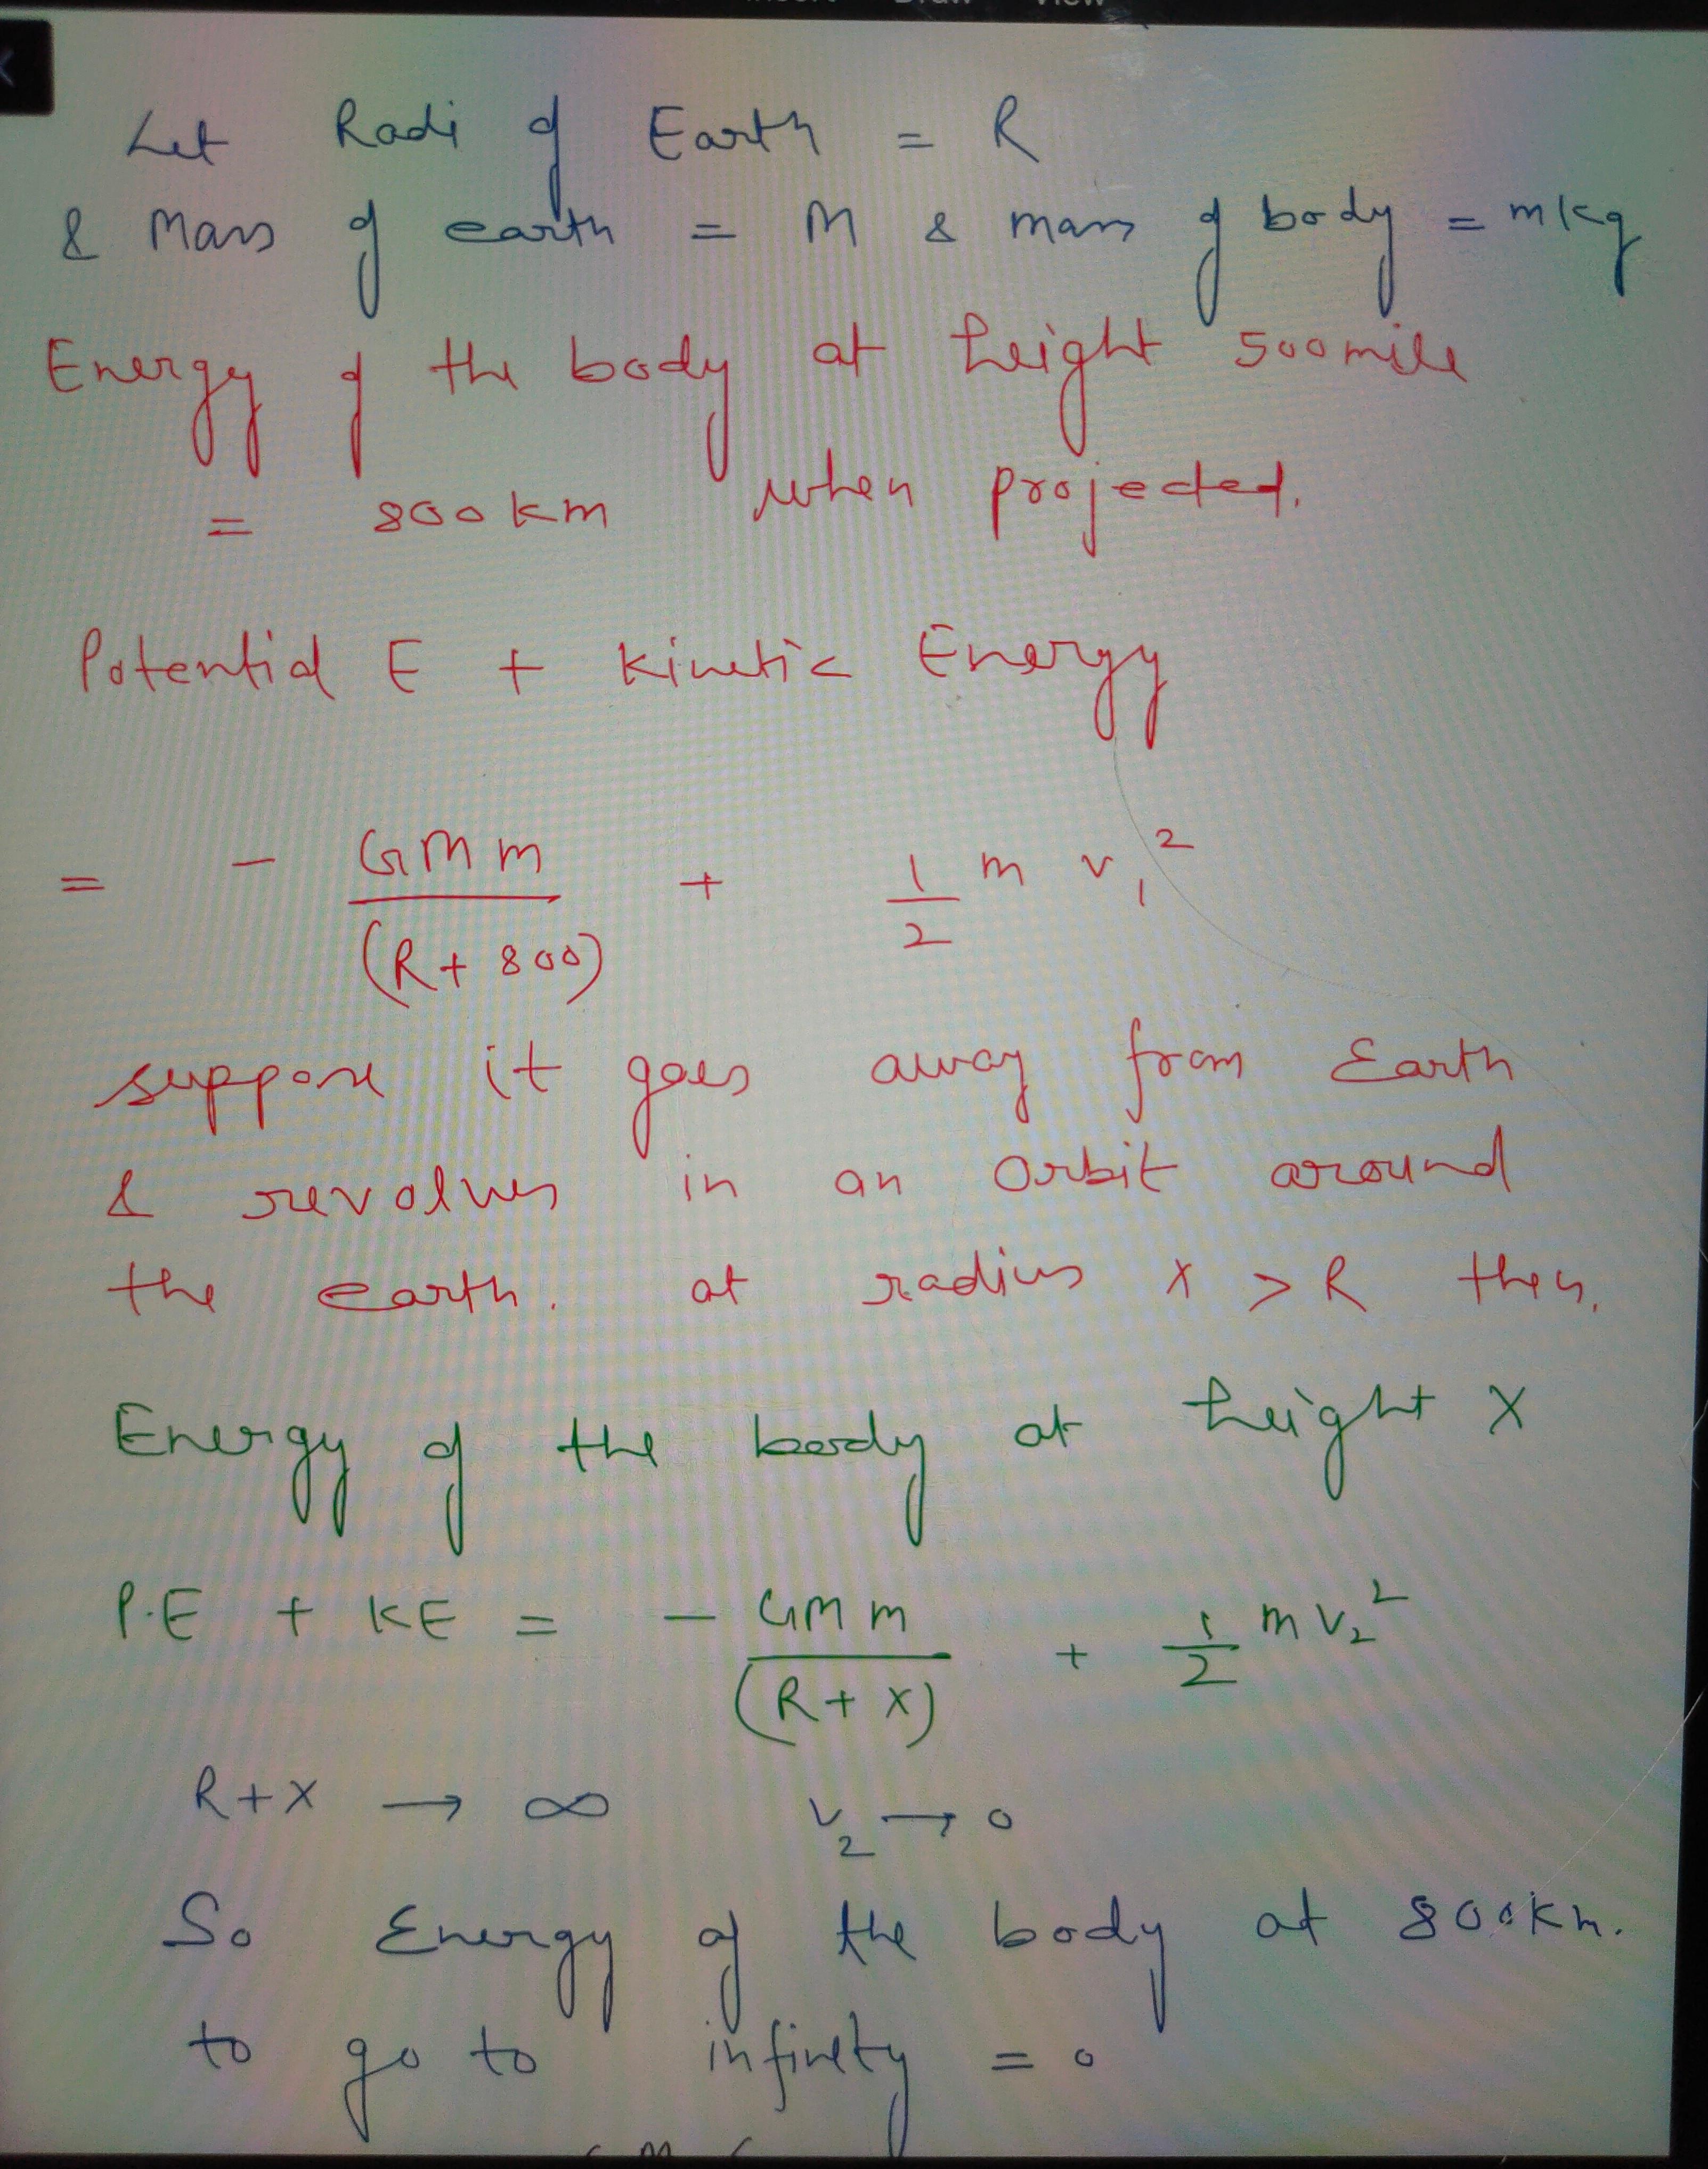 Let Radi of Earth = R
& Mass of earth = M & mass of body = m kg
Energy of the body at height 500 mile
= 800 km when projected.
Potential E + Kinetic Energy
= - GMm/(R+800) + 1/2 m v₁²
suppose it goes away from Earth
& revolves in an Orbit around
the earth. at radius x > R then,
Energy of the body at height X
P.E + KE = - GMm/(R+X) + 1/2 m v₂²
R+X → ∞ v₂ → 0
So Energy of the body at 800 km.
to go to infinety = 0